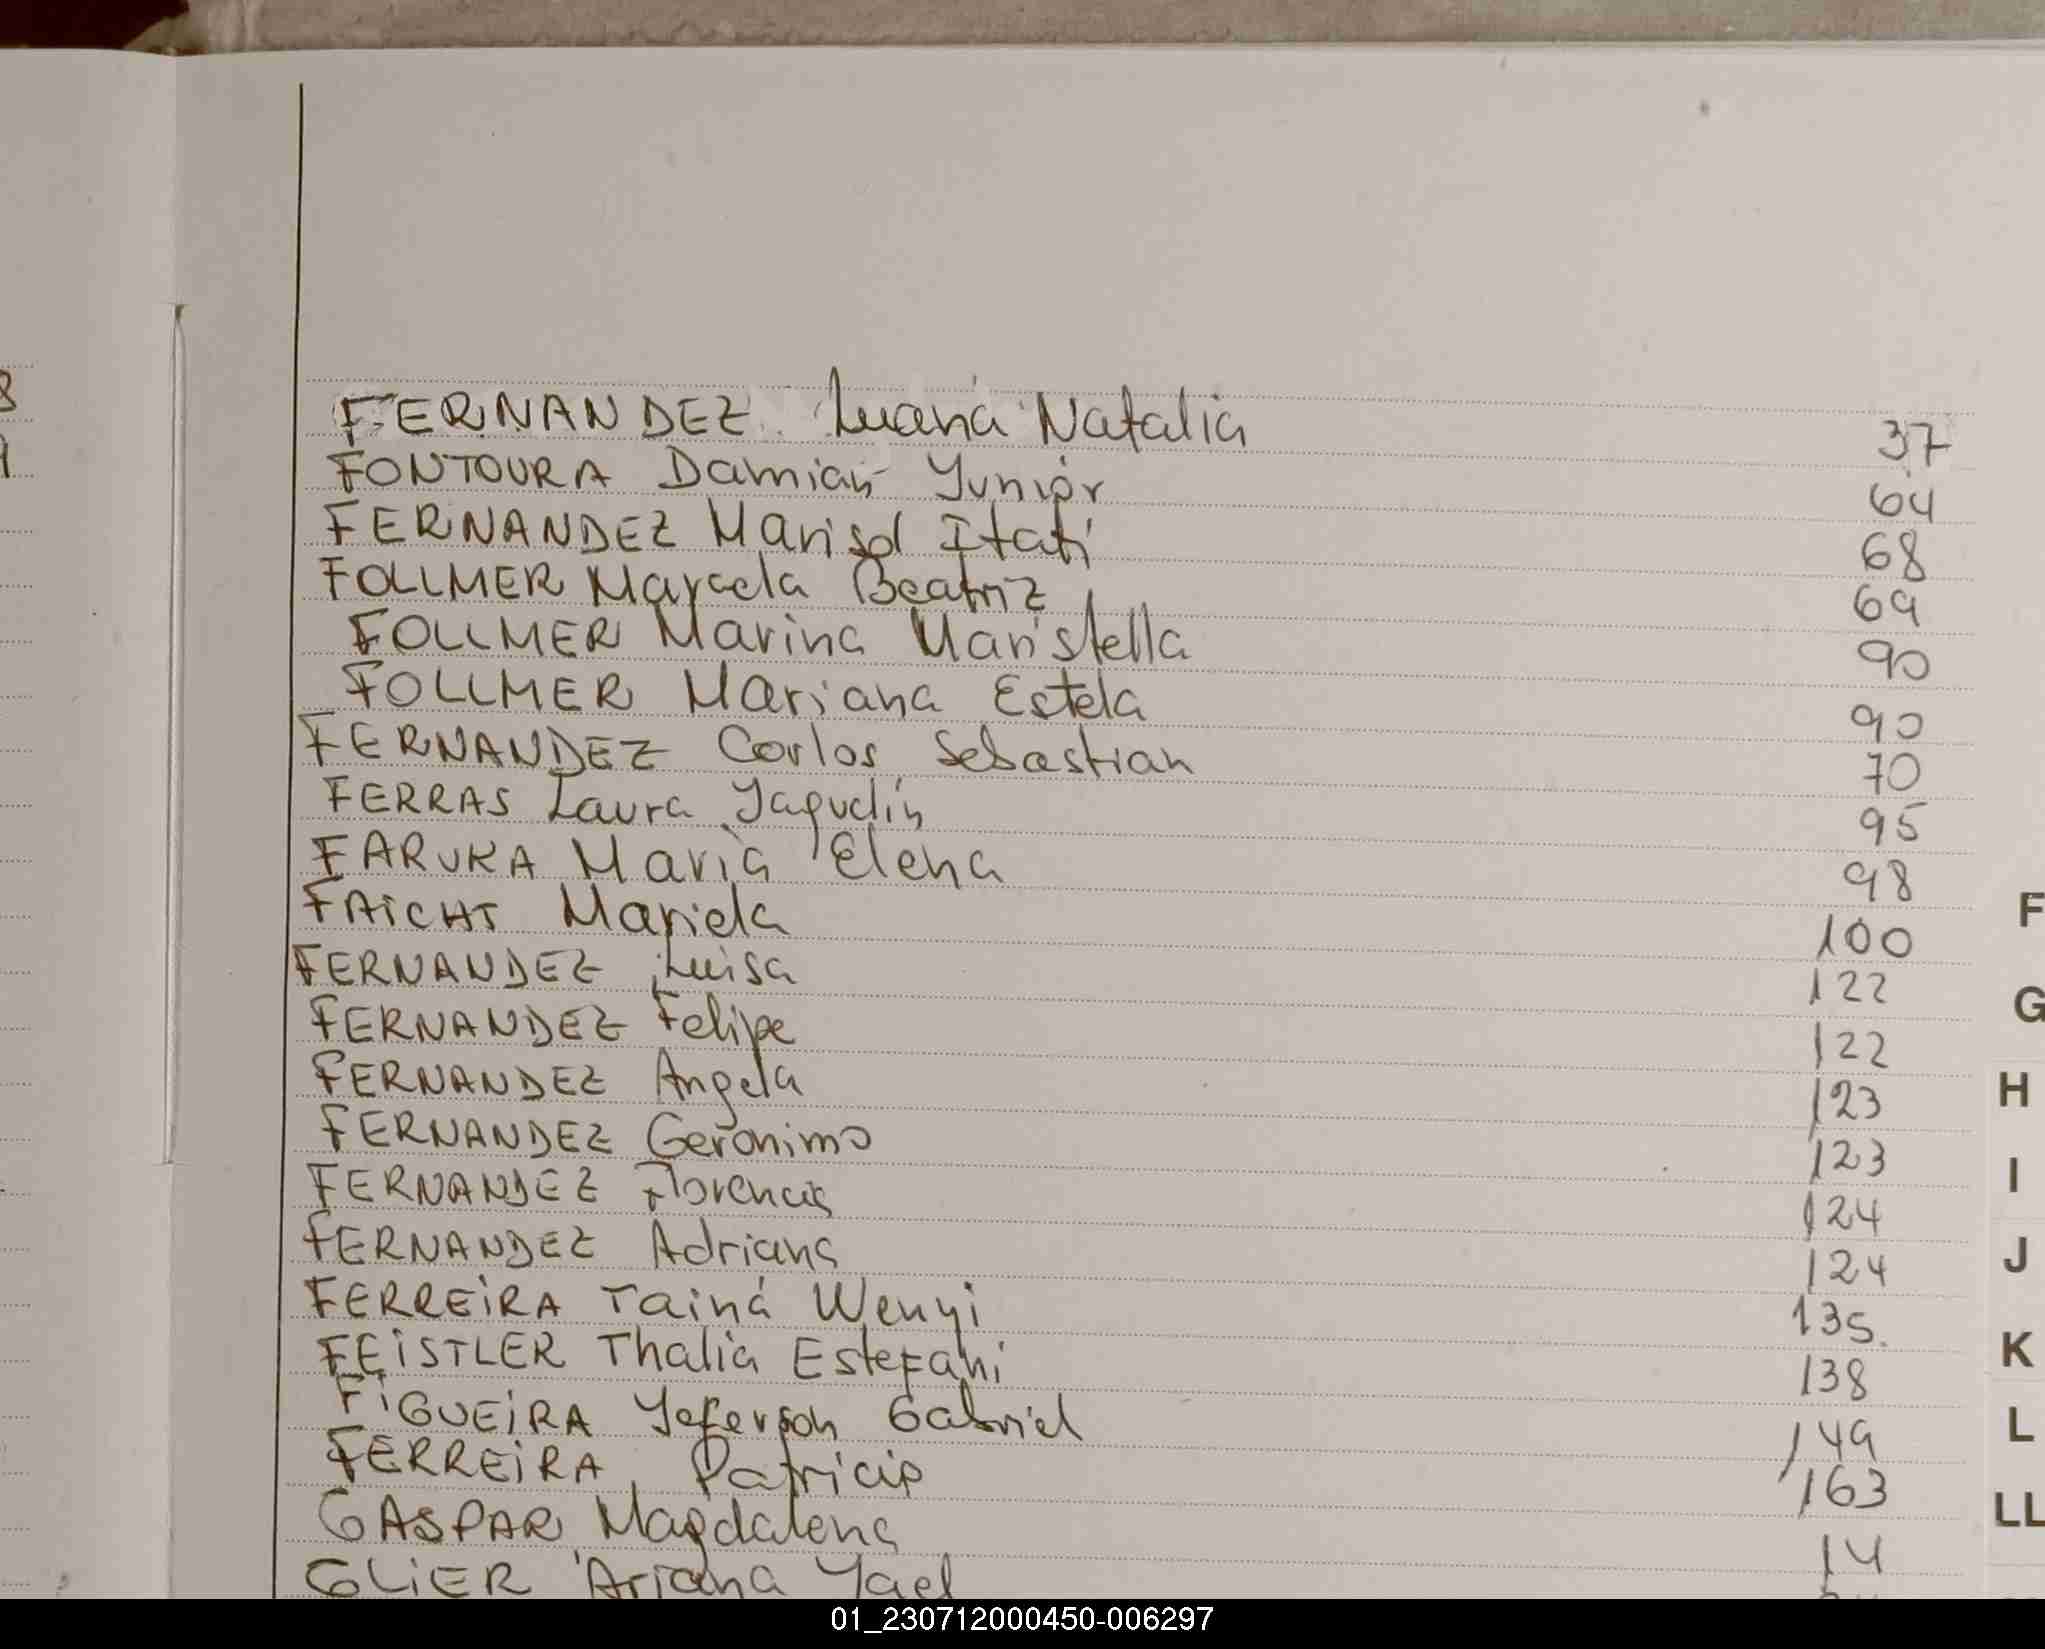 FERNANDEZ Luana Natalia 37
FONTOURA Damian Yunior 64
FERNANDEZ Marisol Itati 68
FOLLMER Marcela Beatriz 69
FOLLMER Marina Maristella 90
FOLLMER Mariana Estela 90
FERNANDEZ Carlos Sebastian 70
FERRAS Laura Jaquelin 95
FARUKA Maria Elena 98
FAICHT Mariela 100
FERNANDEZ Luisa 122
FERNANDEZ Felipe 122
FERNANDEZ Angela 123
FERNANDEZ Geronimo 123
FERNANDEZ Florencia 124
FERNANDEZ Adriana 124
FERREIRA Tainá Wenyi 135.
FEISTLER Thalia Estefani 138
FIGUEIRA Yeferson Gabriel 149
FERREIRA Patricia 163
GASPAR Magdalena 14
GLIER Ariana Yael
F
G
H
I
J
K
L
LL
01_230712000450-006297